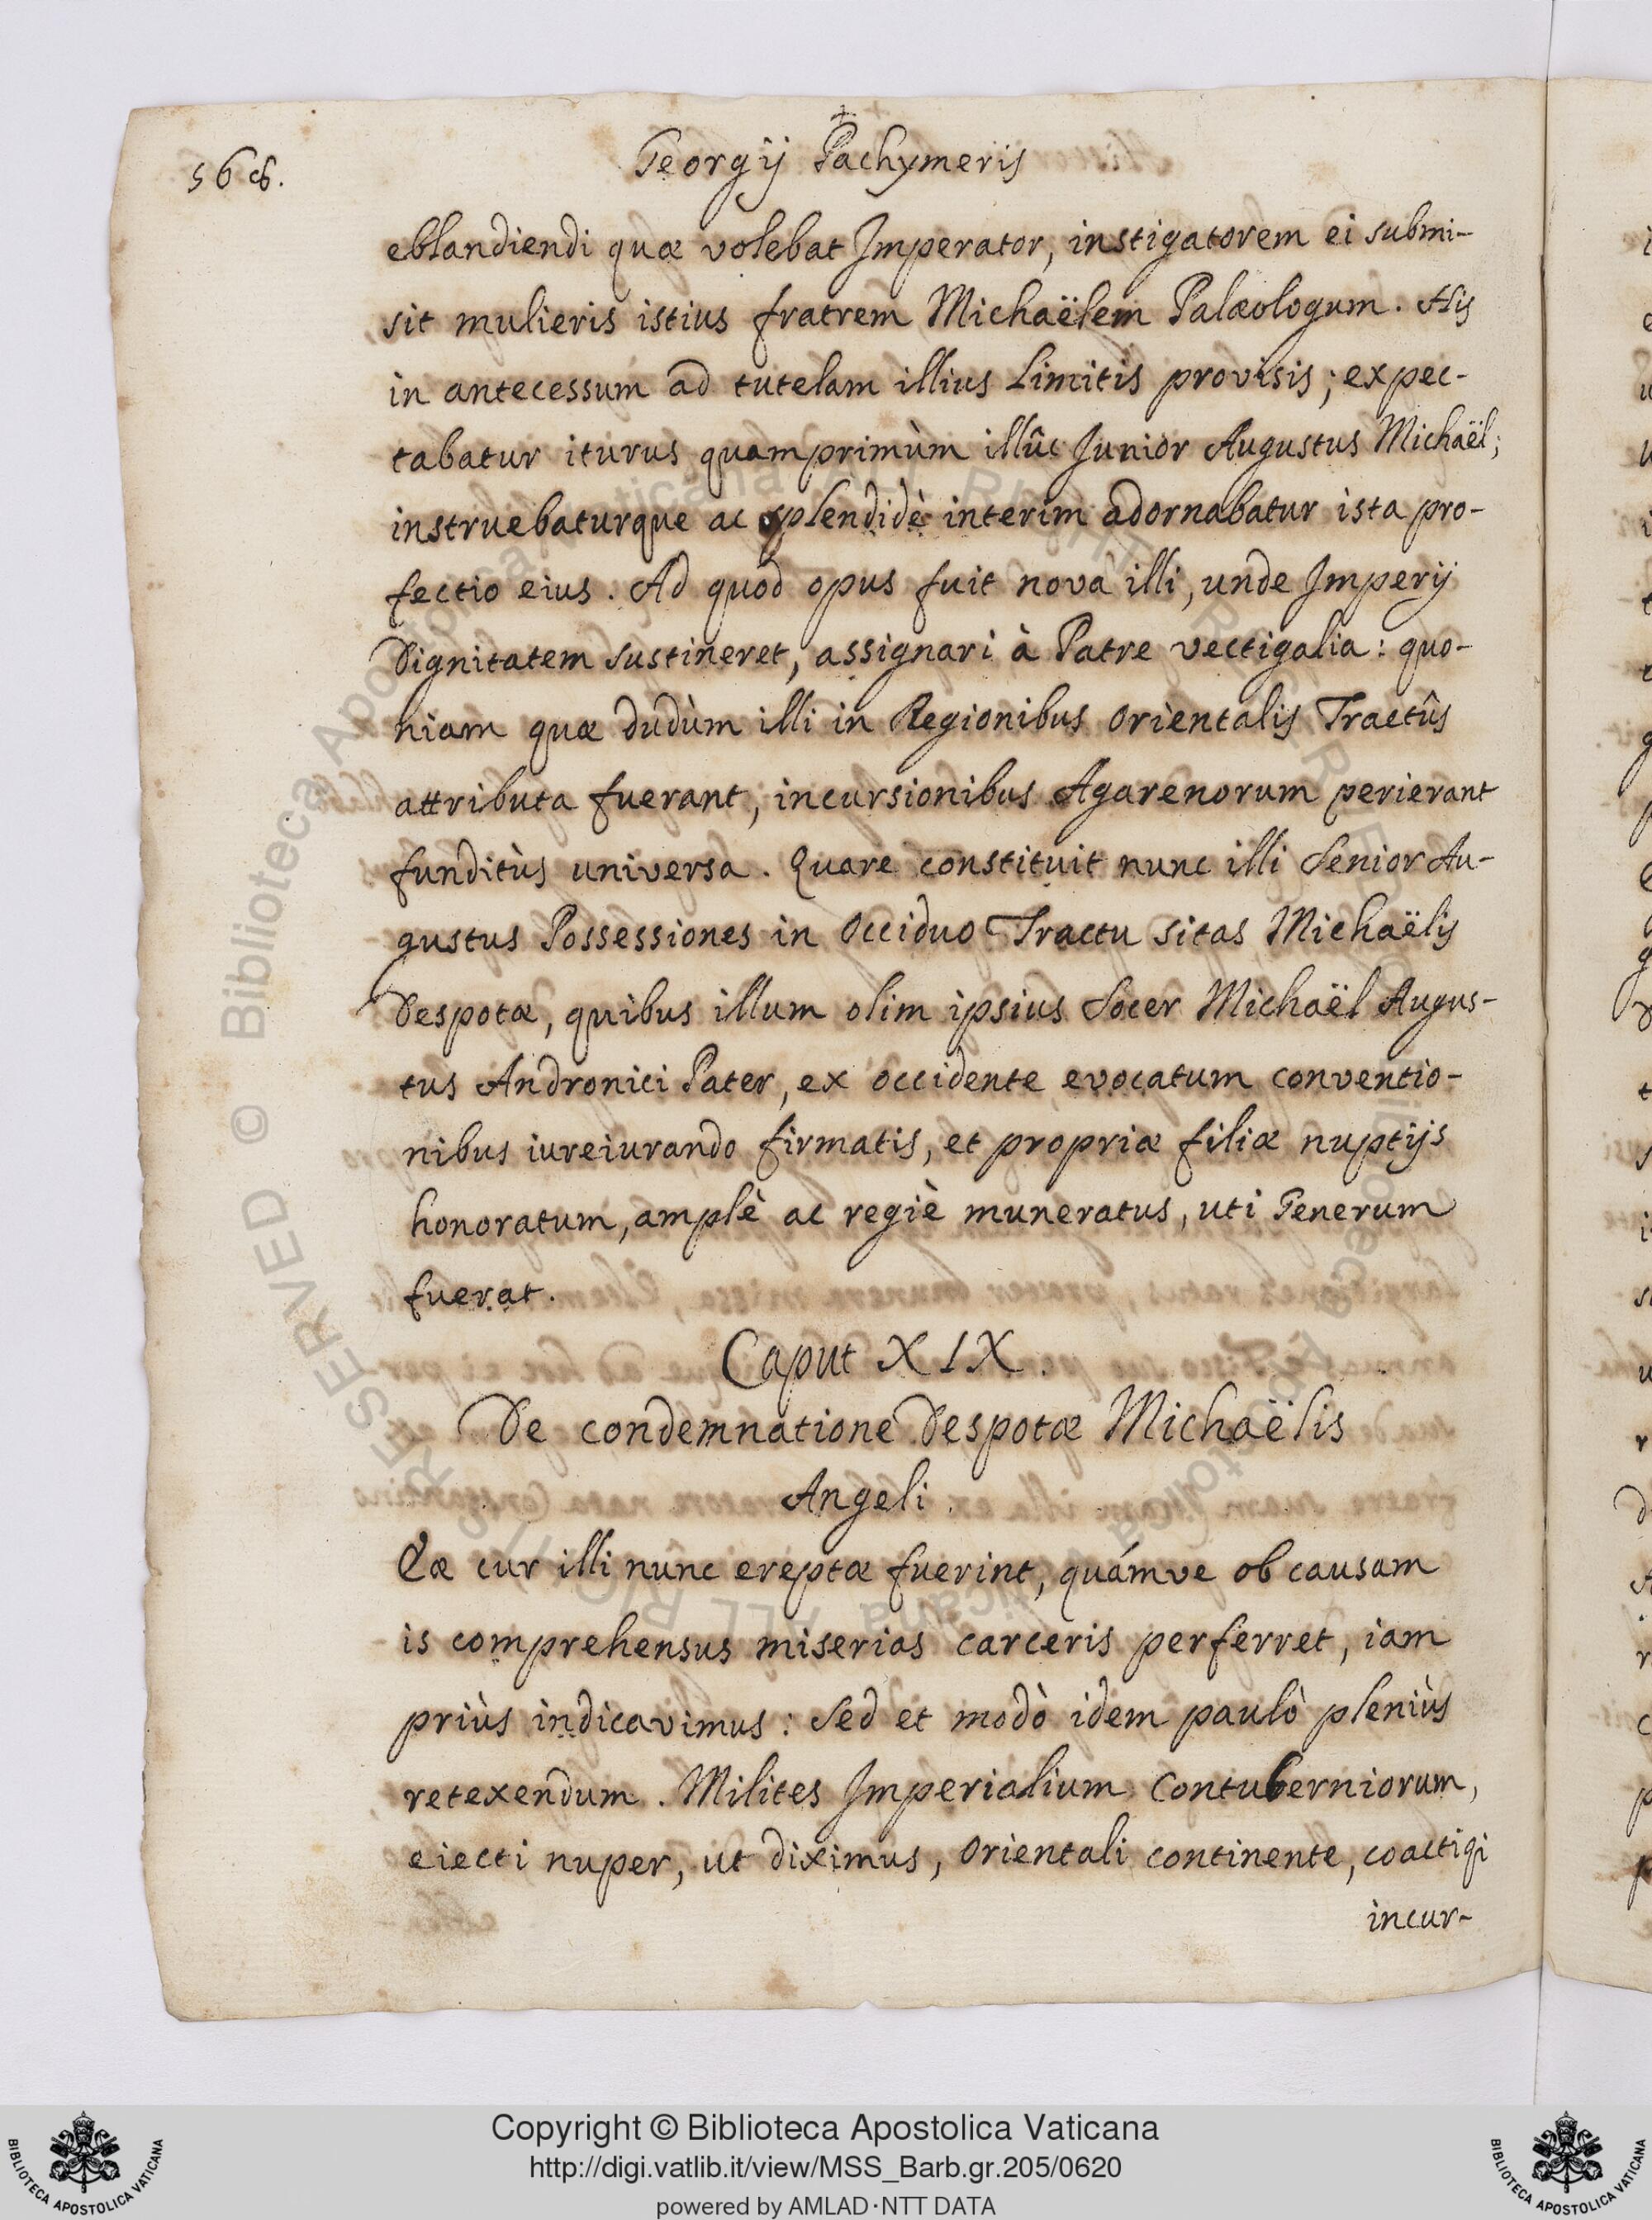 56 .
Georgij Pachymeris
eblandiendi quæ volebat Imperator, instigatorem ei submi-
sit mulieris istius fratrem Michaëlem Palæologum. His
in antecessum ad tutelam illius Limitis provisis; expec-
tabatur iturus quamprimùm illûc Junior Augustus Michaël;
instruebaturque ac splendidè interim adornabatur ista pro-
fectio eius. Ad quod opus fuit nova illi, unde Imperij
Dignitatem sustineret, assignari à Patre vectigalia: quo-
niam quæ dudùm illi in Regionibus Orientalis Tractûs
attributa fuerant, incursionibus Agarenorum perierant
funditùs universa. Quare constituit nunc illi Senior Au-
gustus Possessiones in Occiduo Tractu sitas Michaëlis
Despotæ, quibus illum olim ipsius Socer Michaël Augus-
tus Andronici Pater, ex Occidente evocatum conventio-
nibus iureiurando firmatis, et propriæ filiæ nuptijs
honoratum, amplè ac regiè muneratus, uti Generum
fuerat.
Caput XIX.
De condemnatione Despotæ Michaëlis
Angeli.
Eæ cur illi nunc ereptæ fuerint, quámve ob causam
is comprehensus miserias carceris perferret, iam
priùs indicavimus: Sed et modò idem paulò pleniùs
retexendum. Milites Imperialium Contuberniorum,
eiecti nuper, ut diximus, Orientali continente, coactiqi
incur-
© Biblioteca Apostolica Vaticana ALL RIGHTS RESERVED
Copyright © Biblioteca Apostolica Vaticana
http://digi.vatlib.it/view/MSS_Barb.gr.205/0620
powered by AMLAD·NTT DATA
BIBLIOTECA APOSTOLICA VATICANA
BIBLIOTECA APOSTOLICA VATICANA